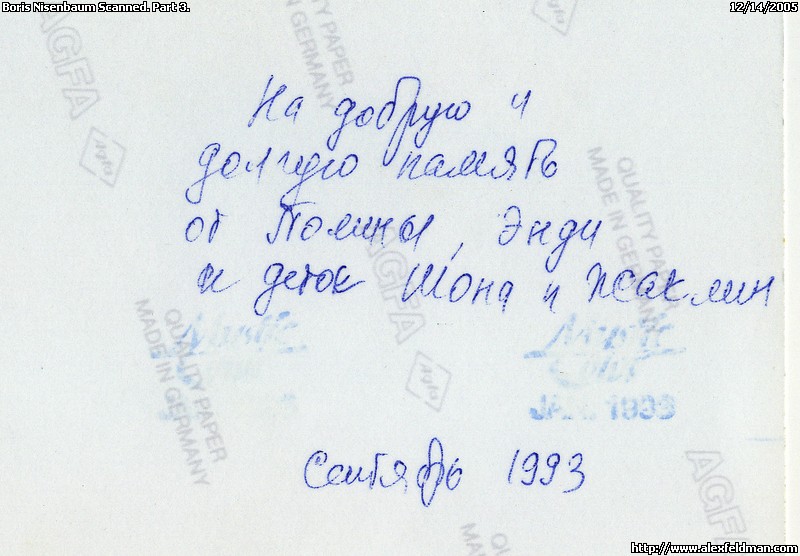 Boris Nisenbaum Scanned. Part 3.
12/14/2005
AGFA
Agfa
QUALITY PAPER
MADE IN GERMANY
На добрую и
долгую память
от Полины, Энди
и деток Шона и Жаклин
QUALITY PAPER
MADE IN GERMANY
AGFA
Agfa
QUALITY PAPER
MADE IN GERMANY
Сентябрь 1993
AGFA
http://www.alexfeldman.com